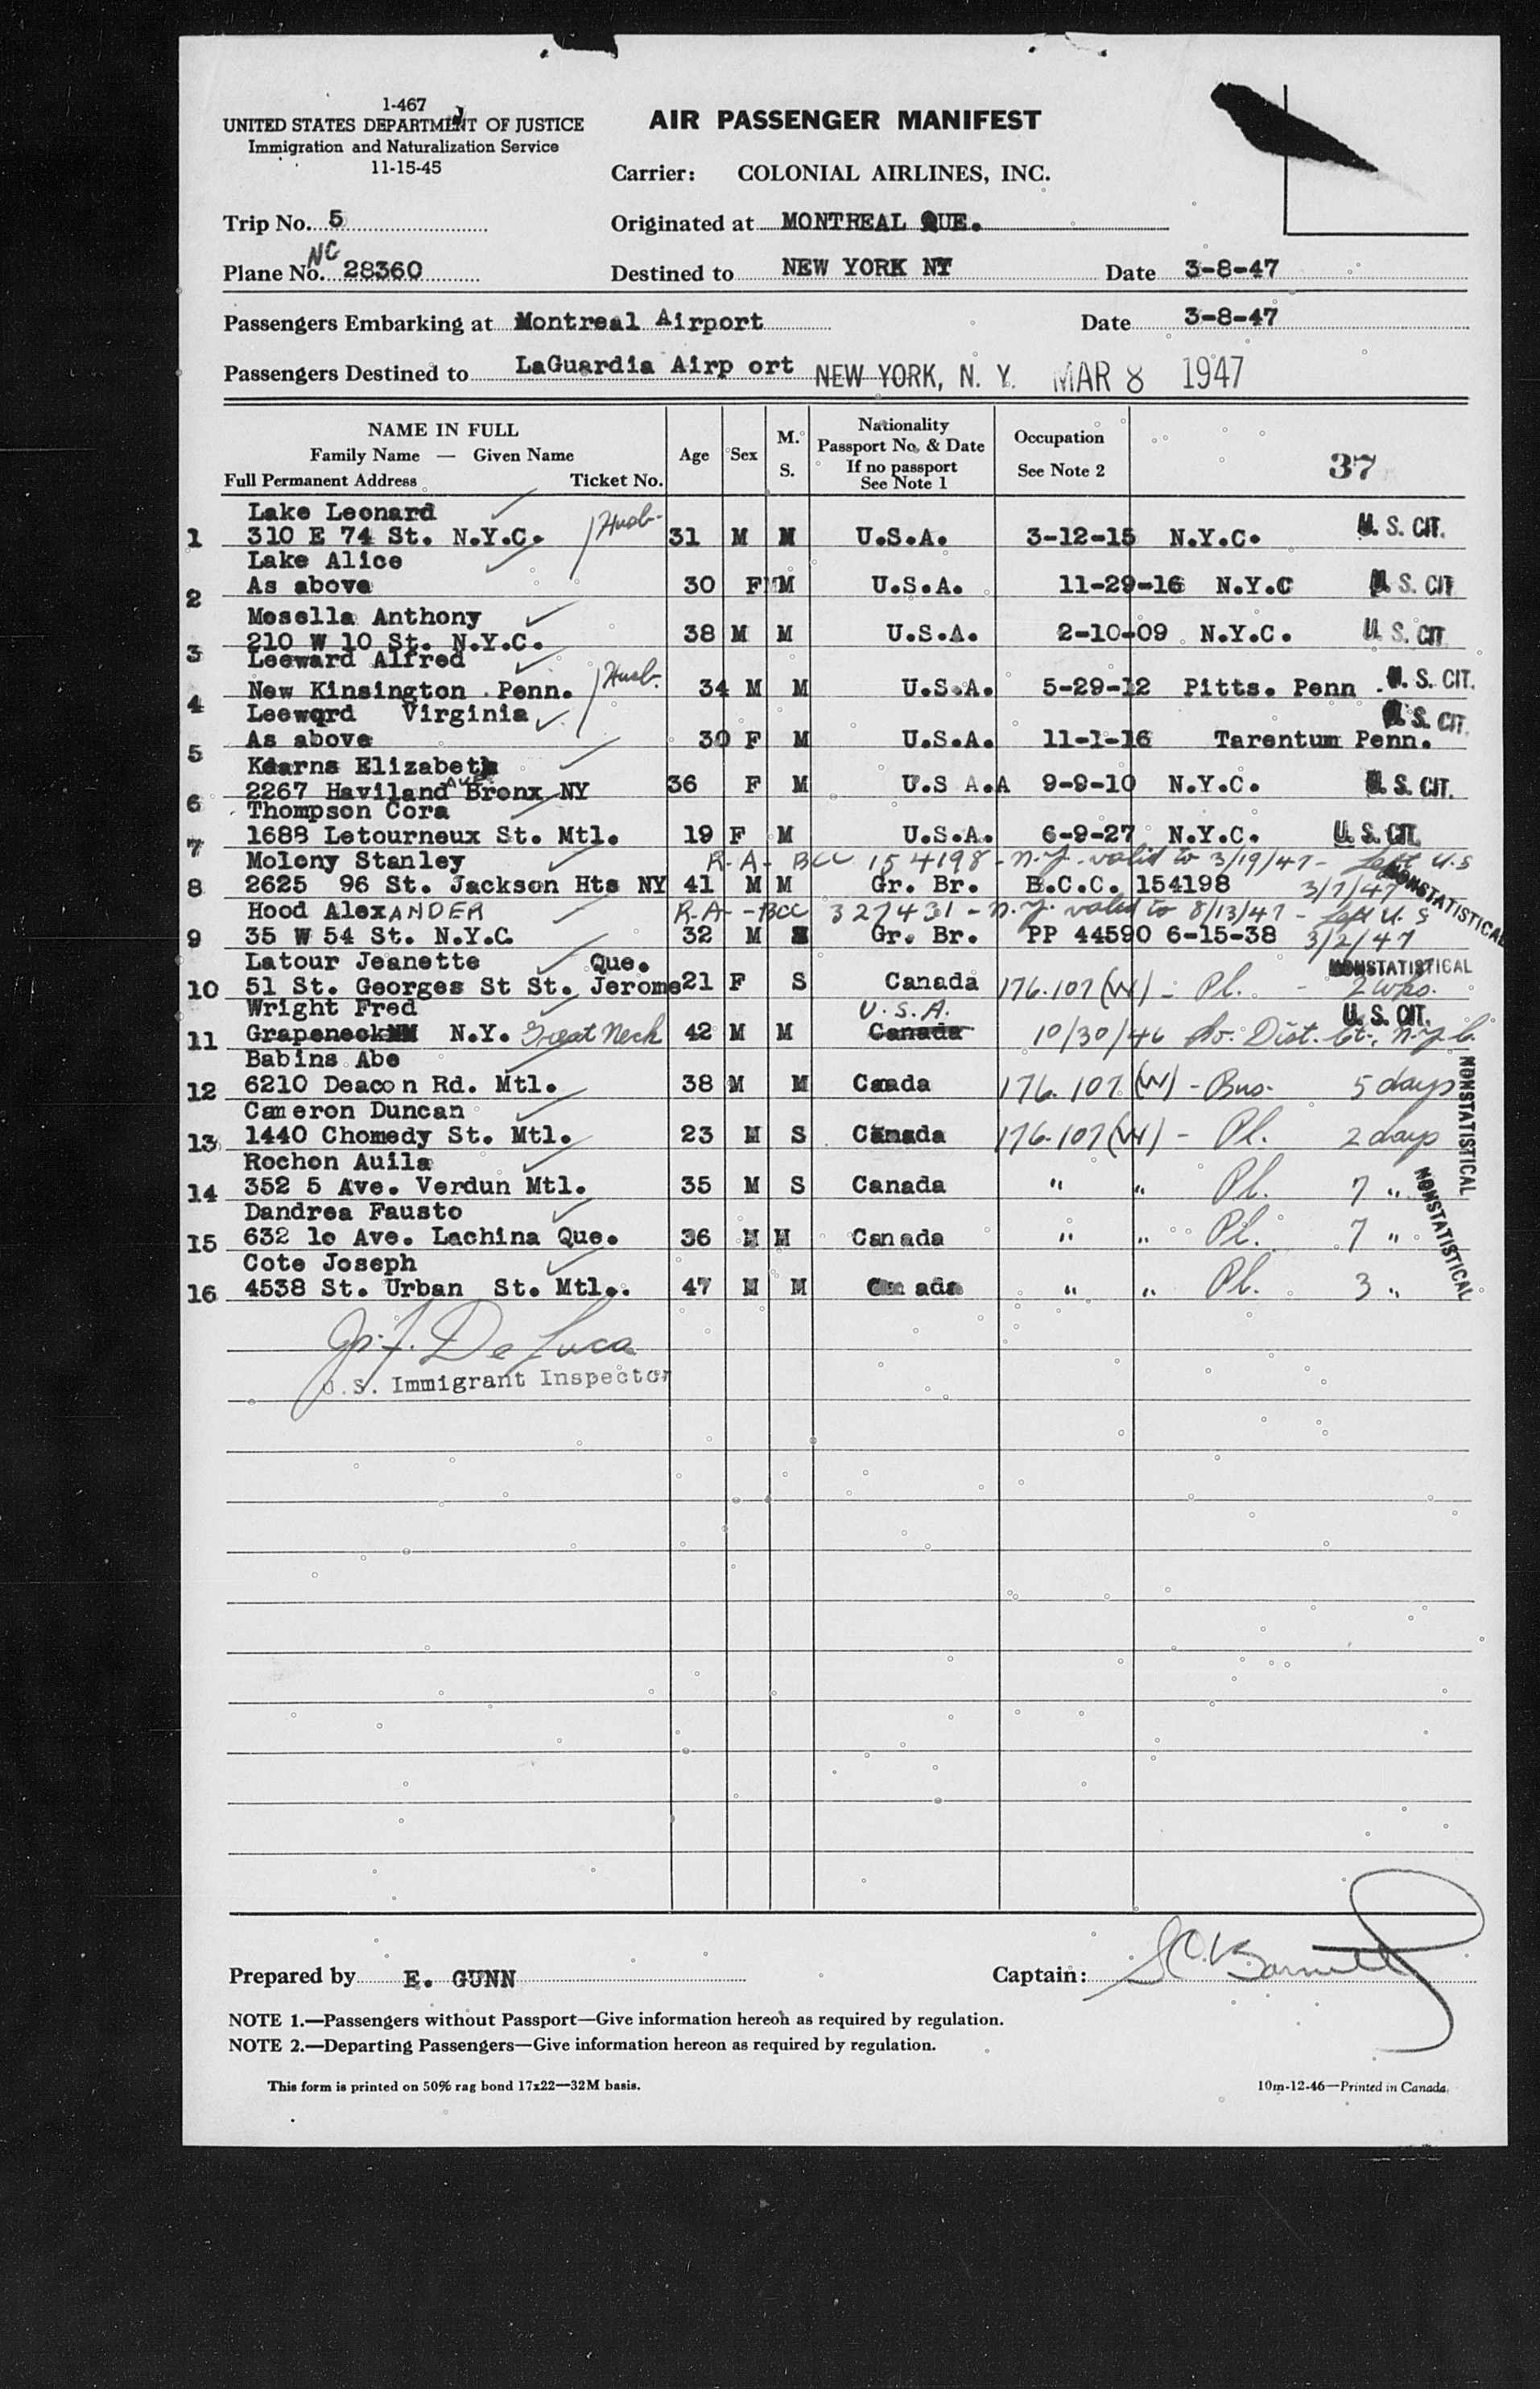 1-467
UNITED STATES DEPARTMENT OF JUSTICE
Immigration and Naturalization Service
11-15-45
AIR PASSENGER MANIFEST
Carrier: COLONIAL AIRLINES, INC.
Trip No. 5 Originated at MONTREAL QUE.
NC
Plane No. 28360 Destined to NEW YORK NY Date 3-8-47
Passengers Embarking at Montreal Airport Date 3-8-47
Passengers Destined to LaGuardia Airp ort NEW YORK, N. Y. MAR 8 1947
NAME IN FULL
Family Name — Given Name
Full Permanent Address Ticket No.
Age Sex M. S.
Nationality
Passport No. & Date
If no passport
See Note 1
Occupation
See Note 2
37
Lake Leonard
1 310 E 74 St. N.Y.C. Husb. 31 M M U.S.A. 3-12-15 N.Y.C. U. S. CIT.
Lake Alice
2 As above 30 F M U.S.A. 11-29-16 N.Y.C U. S. CIT
Mosella Anthony
3 210 W 10 St. N.Y.C. 38 M M U.S.A. 2-10-09 N.Y.C. U. S. CIT.
Leeward Alfred
4 New Kinsington Penn. Husb. 34 M M U.S.A. 5-29-12 Pitts. Penn. U. S. CIT.
Leeword Virginia U. S. CIT.
5 As above 30 F M U.S.A. 11-1-16 Tarentum Penn.
Kearns Elizabeth
6 2267 Haviland Ave Bronx NY 36 F M U.S A.A 9-9-10 N.Y.C. U. S. CIT.
Thompson Cora
7 1688 Letourneux St. Mtl. 19 F M U.S.A. 6-9-27 N.Y.C. U. S. CIT.
Molony Stanley R-A- BCC 154198 - N.Y. valid to 3/19/47 - Left U.S
8 2625 96 St. Jackson Hts NY 41 M M Gr. Br. B.C.C. 154198 3/7/47 NONSTATISTICAL
Hood AlexANDER R-A- -BCC 327431 - N.Y. valid to 8/13/47 - Left U. S
9 35 W 54 St. N.Y.C. 32 M Gr. Br. PP 44590 6-15-38 3/2/47
Latour Jeanette Que. NONSTATISTICAL
10 51 St. Georges St St. Jerome 21 F S Canada 176.107 (W) - Pl. - 2 wks.
Wright Fred U.S.A. U. S. CIT.
11 Grapeneck N.Y. Great Neck 42 M M Canada 10/30/46 So. Dist. Ct., N.Y.C.
Babins Abe
12 6210 Deacon Rd. Mtl. 38 M M Canada 176.107 (W) - Bus. 5 days NONSTATISTICAL
Cameron Duncan
13 1440 Chomedy St. Mtl. 23 M S Canada 176.107 (W) - Pl. 2 days
Rochon Auila
14 352 5 Ave. Verdun Mtl. 35 M S Canada " " Pl. 7 " NONSTATISTICAL
Dandrea Fausto
15 632 10 Ave. Lachina Que. 36 M M Canada " " Pl. 7 "
Cote Joseph
16 4538 St. Urban St. Mtl. 47 M M Can ada " " Pl. 3 "
De Luca
U.S. Immigrant Inspector
Prepared by E. GUNN Captain:
NOTE 1.—Passengers without Passport—Give information hereon as required by regulation.
NOTE 2.—Departing Passengers—Give information hereon as required by regulation.
This form is printed on 50% rag bond 17x22—32M basis. 10m-12-46—Printed in Canada.